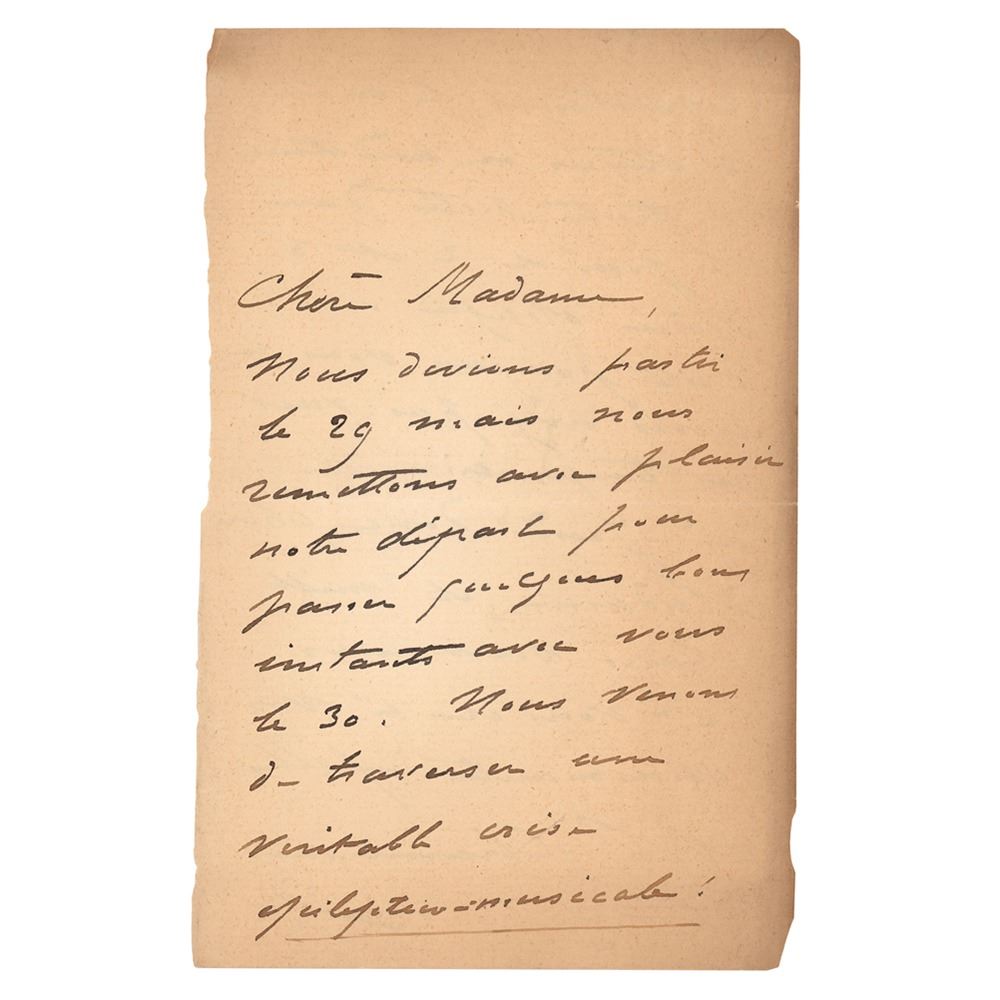 Chère Madame,
Nous devions partir
le 29 mais nous
remettons avec plaisir
notre départ pour
passer quelques bons
instants avec vous
le 30. Nous venons
de traverser une
veritable crise
epileptico-musicale!